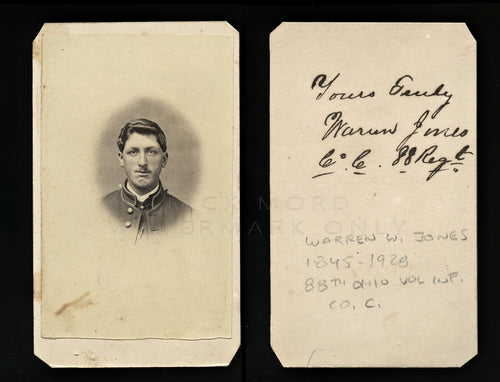 Yours Truly
Warren Jones
Co. C. 88 Regt.
WARREN W. JONES
1845-1928
88TH OHIO VOL INF.
CO. C.
MORD
WATERMARK ONLY